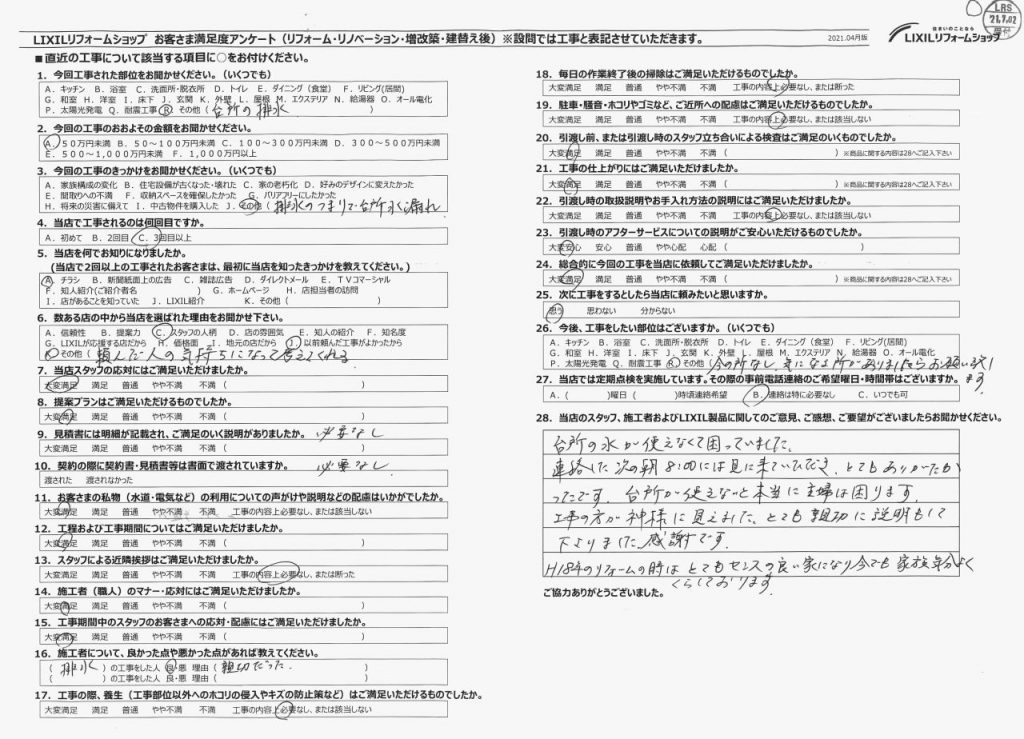 LIXILリフォームショップ お客さま満足度アンケート（リフォーム・リノベーション・増改築・建替え後）※設問では工事と表記させていただきます。
2021.04月版
住まいのことなら
LIXILリフォームショップ
LRS
'21.7.02
受付
■直近の工事について該当する項目に○をお付けください。
1．今回工事された部位をお聞かせください。（いくつでも）
A．キッチン B．浴室 C．洗面所・脱衣所 D．トイレ E．ダイニング（食堂） F．リビング(居間)
G．和室 H．洋室 I．床下 J．玄関 K．外壁 L．屋根 M．エクステリア N．給湯器 O．オール電化
P．太陽光発電 Q．耐震工事 R．その他（ 台所の排水 ）
2．今回の工事のおおよその金額をお聞かせください。
A．50万円未満 B．50～100万円未満 C．100～300万円未満 D．300～500万円未満
E．500～1,000万円未満 F．1,000万円以上
3．今回の工事のきっかけをお聞かせください。（いくつでも）
A．家族構成の変化 B．住宅設備が古くなった・壊れた C．家の老朽化 D．好みのデザインに変えたかった
E．間取りへの不満 F．収納スペースを確保したかった G．バリアフリーにしたかった
H．将来の災害に備えて I．中古物件を購入した J．その他（ 排水のつまりで台所水漏れ
4．当店で工事されるのは何回目ですか。
A．初めて B．2回目 C．3回目以上
5．当店を何でお知りになりましたか。
(当店で2回以上の工事されたお客さまは、最初に当店を知ったきっかけを教えてください。)
A．チラシ B．新聞紙面上の広告 C．雑誌広告 D．ダイレクトメール E．TVコマーシャル
F．知人紹介(ご紹介者名 ) G．ホームページ H．店担当者の訪問
I．店があることを知っていた J．LIXIL紹介 K．その他（ ）
6．数ある店の中から当店を選ばれた理由をお聞かせ下さい。
A．信頼性 B．提案力 C．スタッフの人柄 D．店の雰囲気 E．知人の紹介 F．知名度
G．LIXILが応援する店だから H．価格面 I．地元の店だから J．以前頼んだ工事がよかったから
K．その他（ 頼んだ人の気持ちになって考えてくれる
7．当店スタッフの応対にはご満足いただけましたか。
大変満足 満足 普通 やや不満 不満（ ）
8．提案プランはご満足いただけるものでしたか。
大変満足 満足 普通 やや不満 不満（ ）
9．見積書には明細が記載され、ご満足のいく説明がありましたか。 必要なし
大変満足 満足 普通 やや不満 不満（ ）
10．契約の際に契約書・見積書等は書面で渡されていますか。 必要なし
渡された 渡されなかった
11．お客さまの私物（水道・電気など）の利用についての声がけや説明などの配慮はいかがでしたか。
大変満足 満足 普通 やや不満 不満 工事の内容上必要なし、または該当しない
12．工程および工事期間についてはご満足いただけましたか。
大変満足 満足 普通 やや不満 不満（ ）
13．スタッフによる近隣挨拶はご満足いただけましたか。
大変満足 満足 普通 やや不満 不満 工事の内容上必要なし、または断った
14．施工者（職人）のマナー・応対にはご満足いただけましたか。
大変満足 満足 普通 やや不満 不満（ ）
15．工事期間中のスタッフのお客さまへの応対・配慮にはご満足いただけましたか。
大変満足 満足 普通 やや不満 不満（ ）
16．施工者について、良かった点や悪かった点があれば教えてください。
（ 排水 ）の工事をした人 良・悪 理由（ 親切だった. ）
（ ）の工事をした人 良・悪 理由（ ）
17．工事の際、養生（工事部位以外へのホコリの侵入やキズの防止策など）はご満足いただけるものでしたか。
大変満足 満足 普通 やや不満 不満 工事の内容上必要なし、または該当しない
18．毎日の作業終了後の掃除はご満足いただけるものでしたか。
大変満足 満足 普通 やや不満 不満 工事の内容上必要なし、または断った
19．駐車・騒音・ホコリやゴミなど、ご近所への配慮はご満足いただけるものでしたか。
大変満足 満足 普通 やや不満 不満 工事の内容上必要なし、または該当しない
20．引渡し前、または引渡し時のスタッフ立ち合いによる検査はご満足のいくものでしたか。
大変満足 満足 普通 やや不満 不満（ ）※商品に関する内容は28へご記入下さい
21．工事の仕上がりにはご満足いただけましたか。
大変満足 満足 普通 やや不満 不満（ ）※商品に関する内容は28へご記入下さい
22．引渡し時の取扱説明やお手入れ方法の説明にはご満足いただけましたか。
大変満足 満足 普通 やや不満 不満 工事の内容上必要なし、または該当しない
23．引渡し時のアフターサービスについての説明がご安心いただけるものでしたか。
大変安心 安心 普通 やや心配 心配（ ）
24．総合的に今回の工事を当店に依頼してご満足いただけましたか。
大変満足 満足 普通 やや不満 不満（ ）※商品に関する内容は28へご記入下さい
25．次に工事をするとしたら当店に頼みたいと思いますか。
思う 思わない 分からない
26．今後、工事をしたい部位はございますか。（いくつでも）
A．キッチン B．浴室 C．洗面所・脱衣所 D．トイレ E．ダイニング（食堂） F．リビング(居間)
G．和室 H．洋室 I．床下 J．玄関 K．外壁 L．屋根 M．エクステリア N．給湯器 O．オール電化
P．太陽光発電 Q．耐震工事 R．その他（ 今の所なし、気になる所がありましたらお願い致し
ます
27．当店では定期点検を実施しています。その際の事前電話連絡のご希望曜日・時間帯はございますか。
A．（ ）曜日（ ）時頃連絡希望 B．連絡は特に必要なし C．いつでも可
28．当店のスタッフ、施工者およびLIXIL製品に関してのご意見、ご感想、ご要望がございましたらお聞かせください。
台所の水が使えなくて困っていました、
連絡した次の朝8:00には見に来ていただき、とてもありがたか
ったです。台所が使えないと本当に主婦は困ります。
工事の方が神様に見えました、とても親切に説明もして
下さりました、感謝です。
H18年のリフォームの時は とてもセンスの良い家になり今でも家族気分よく
くらしております
ご協力ありがとうございました。